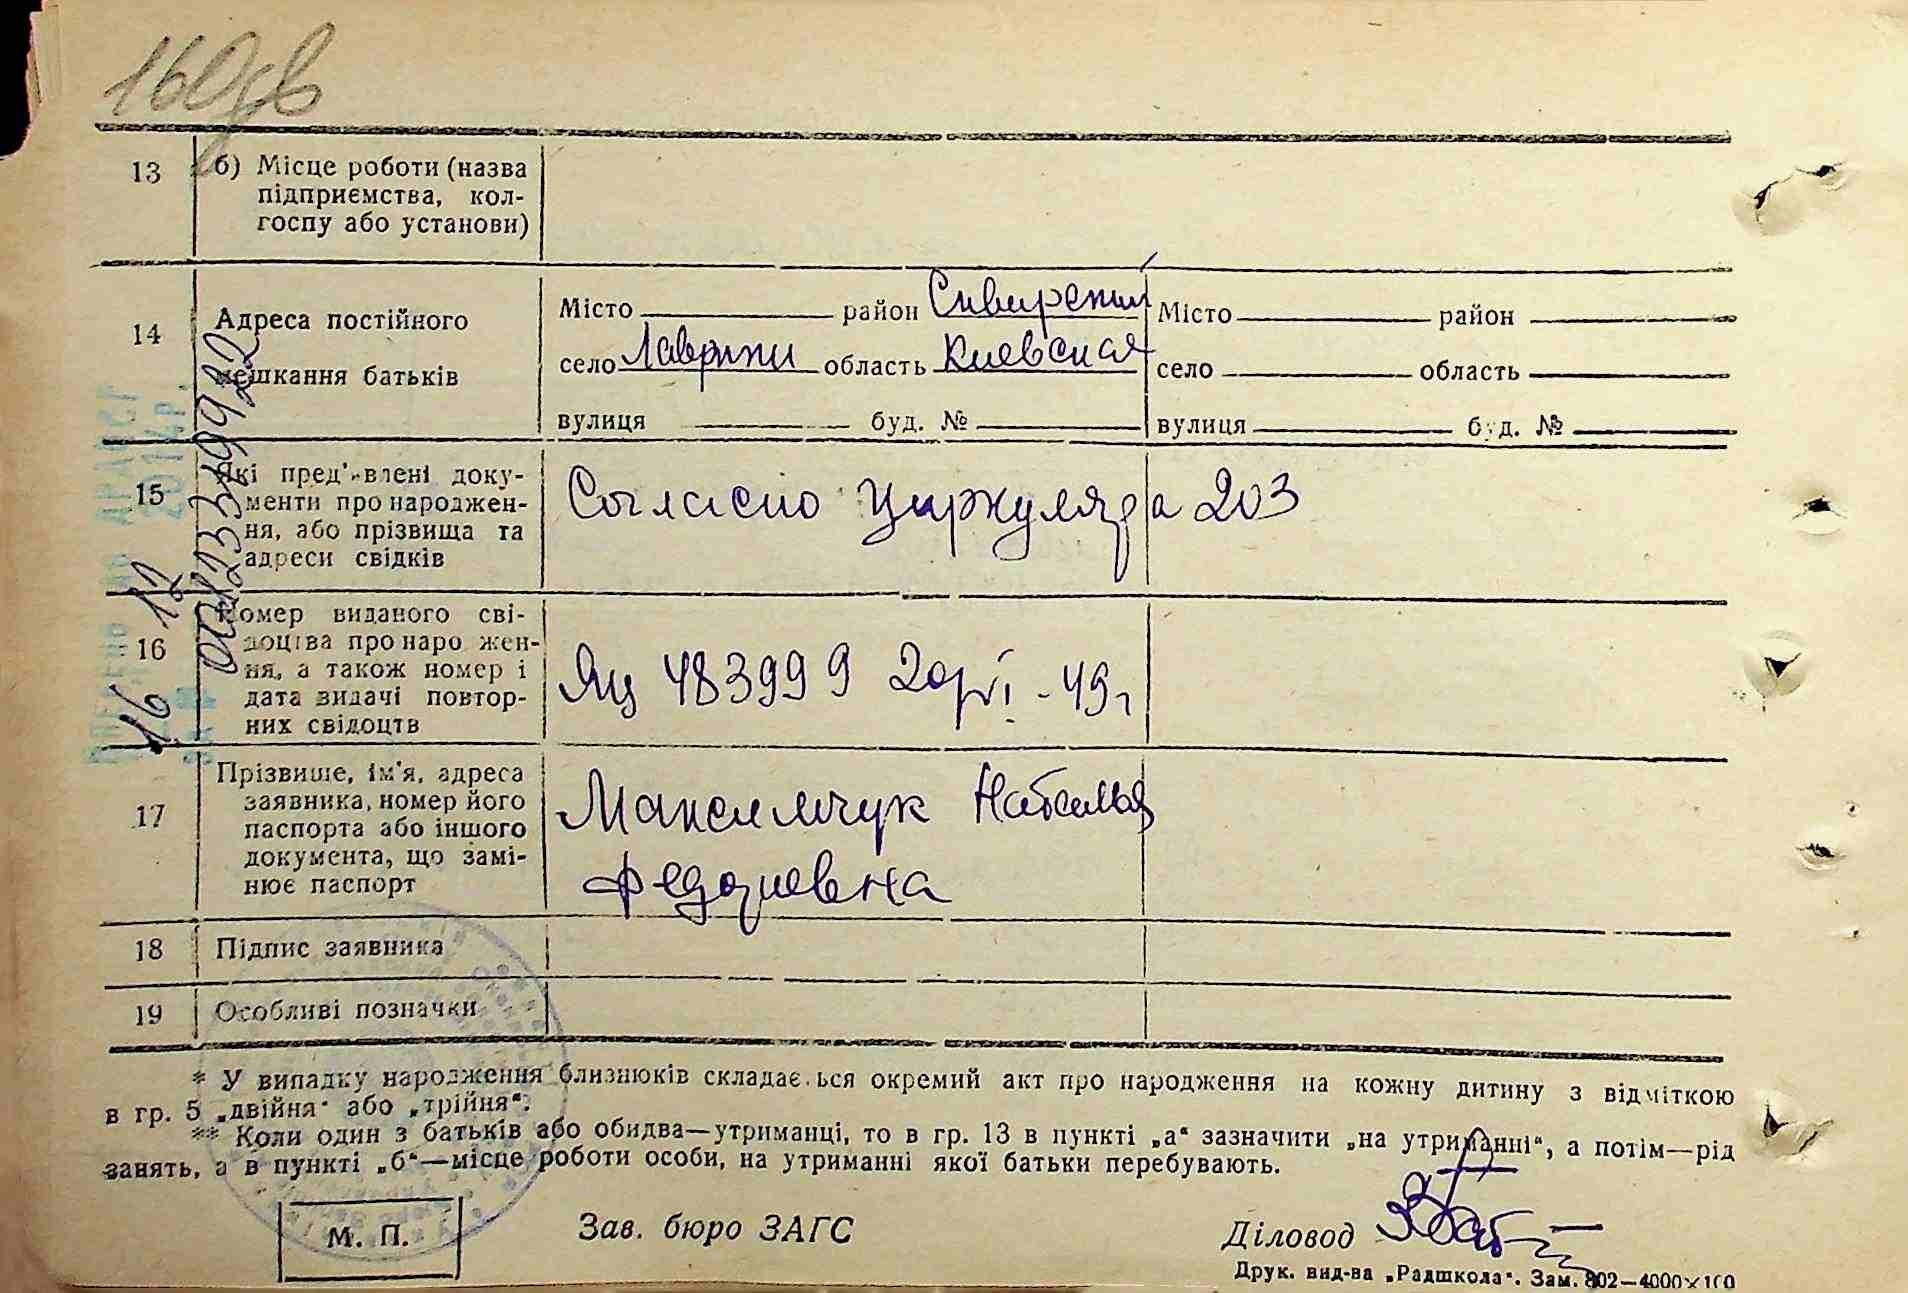 160зв
13 б) Місце роботи (назва
підприємства, кол-
госпу або установи)
14 Адреса постійного
мешкання батьків
Місто район Сквирский Місто район
село Лаврики область Киевская село область
вулиця буд. № вулиця буд. №
15 Які пред'явлені доку-
менти про народжен-
ня, або прізвища та
адреси свідків
Согласно циркуляра 203
16 Номер виданого сві-
доцтва про народжен-
ня, а також номер і
дата видачі повтор-
них свідоцтв
Яц 483999 20/VI-49г
17 Прізвище, ім'я, адреса
заявника, номер його
паспорта або іншого
документа, що замі-
нює паспорт
Максимчук Наталья
Федориевна
18 Підпис заявника
19 Особливі позначки
* У випадку народження близнюків складається окремий акт про народження на кожну дитину з відміткою
в гр. 5 „двійня" або „трійня".
** Коли один з батьків або обидва—утриманці, то в гр. 13 в пункті „а" зазначити „на утриманні", а потім—рід
занять, а в пункті „б"—місце роботи особи, на утриманні якої батьки перебувають.
М. П. Зав. бюро ЗАГС Діловод
Друк. вид-ва „Радшкола". Зам. 802—4000×100
16 12
00123399922